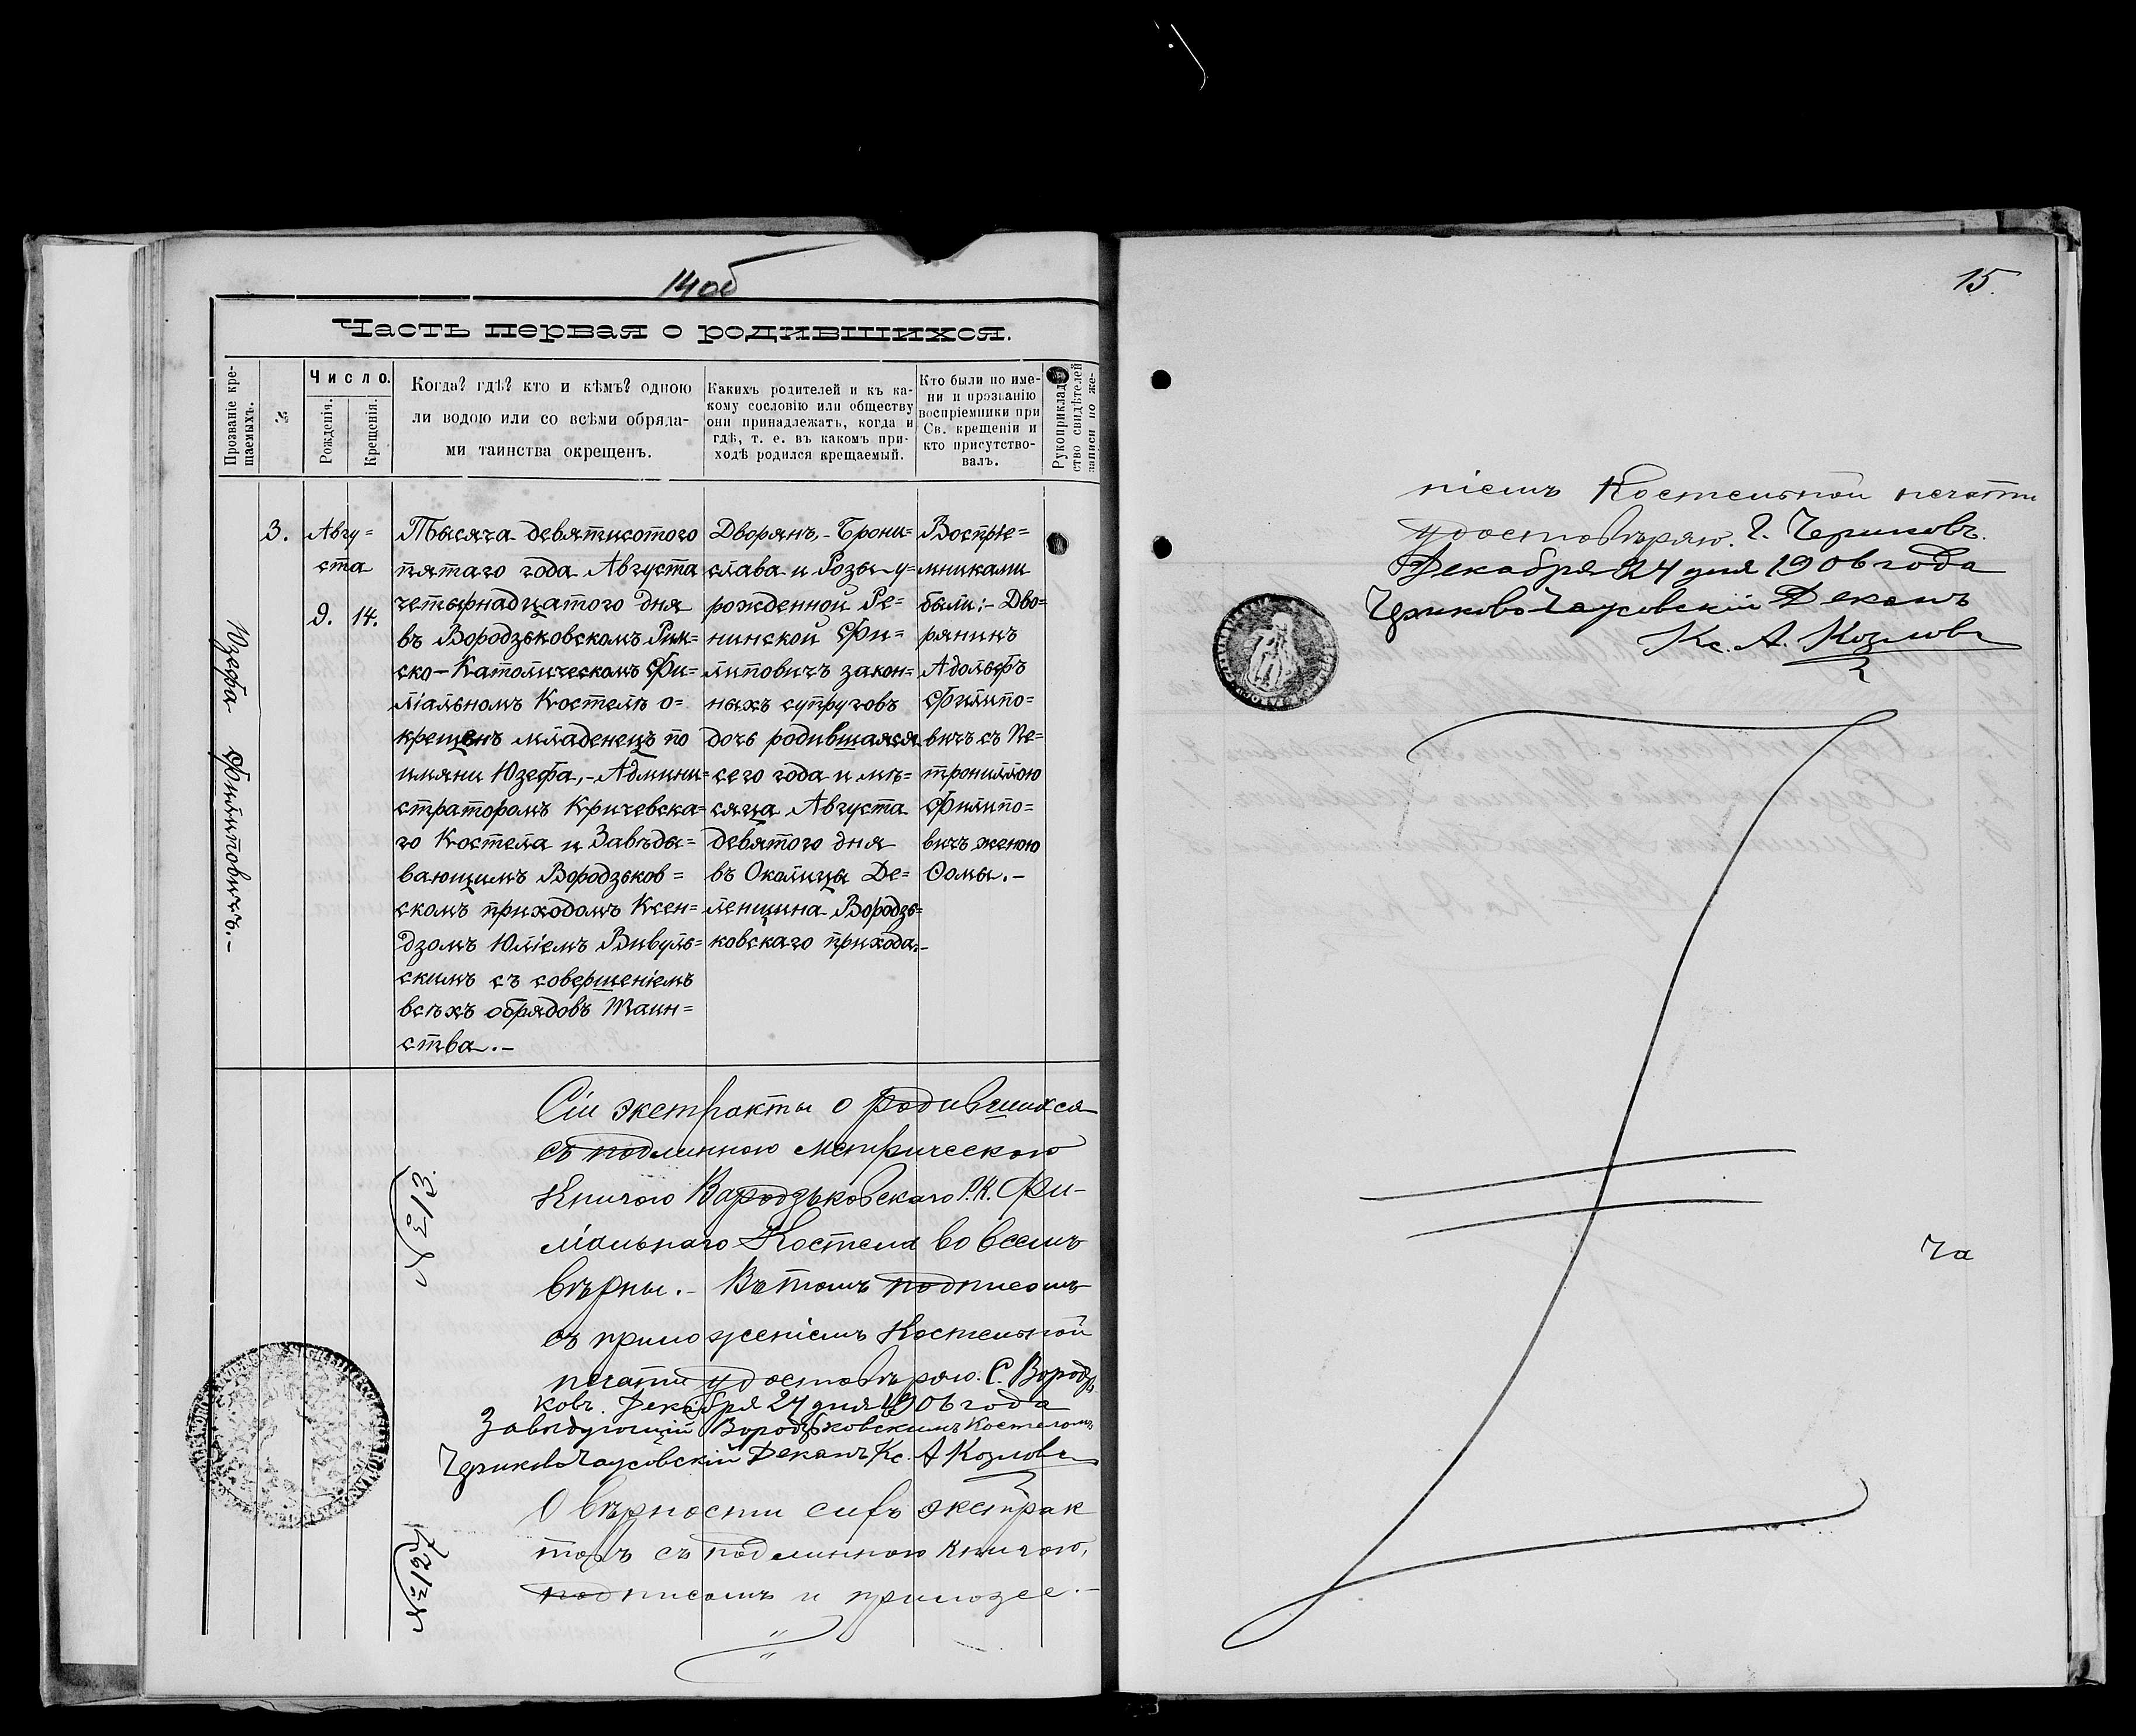 14об
Часть первая о родившихся.
Прозваніе кре-
щаемыхъ.
№
Число.
Рожденія.
Крещенія.
Когда? гдѣ? кто и кѣмъ? одною
ли водою или со всѣми обряда-
ми таинства окрещенъ.
Какихъ родителей и къ ка-
кому сословію или обществу
они принадлежать, когда и
гдѣ, т. е. въ какомъ при-
ходѣ родился крещаемый.
Кто были по име-
ни и прозванію
воспріемники при
Св. крещеніи и
кто присутство-
валъ.
Рукоприклад-
ство свидѣтелей
записи по же-
Юзефа Филиповичъ.-
3.
Авгу=
ста
9. 14.
Тысяча девятисотого
пятаго года Августа
четырнадцатого дня
въ Вородзьковскомъ Рим=
ско-Католическомъ Фи=
ліальномъ Костелѣ о=
крещенъ младенецъ по
имяни Юзефа,- Админи=
страторомъ Кричевска=
го Костела и Завѣды=
вающимъ Вородзьков=
скомъ приходомъ Ксен=
дзомъ Юліемъ Вивуль=
скимъ съ совершеніемъ
всѣхъ обрядовъ Таин=
ства.-
Дворянъ,- Брони=
слава и Розы у=
рожденной Ре=
нинской Фи=
липовичъ закон=
ныхъ супруговъ
дочь родившаяся
сего года и мѣ=
сяца Августа
девятого дня
въ Околицы Де=
ленщина Вородзь=
ковскаго прихода.-
Воспріе=
мниками
были:- Дво=
рянинъ
Адольфъ
Филипо=
вичъ съ Пе=
трониллою
Филипо=
вичъ женою
Ѳомы.-
Сіи экстракты о родившихся
съ подлинною метрическою
Книгою Вародзьковскаго Р.К. Фи-
ліальнаго Костела во всемъ
вѣрны.- Въ томъ подписомъ
съ приложеніемъ Костельной
печати удостовѣряю. С. Вородзь
ковъ. Декабря 24 дня 1906 года
Завѣдующій Вородзьковскимъ Костеломъ
Чериково Чаусовскій Деканъ Кс. А Козловъ
О вѣрности сихъ экстрак
товъ съ подлинною книгою,
подписомъ и приложе.-
15.
ніемъ Костельной печати
удостовѣряю. Г. Чериковъ.
Декабря 24 дня 1906 года
Чериково Чаусовскій Деканъ
Кс. А. Козловъ